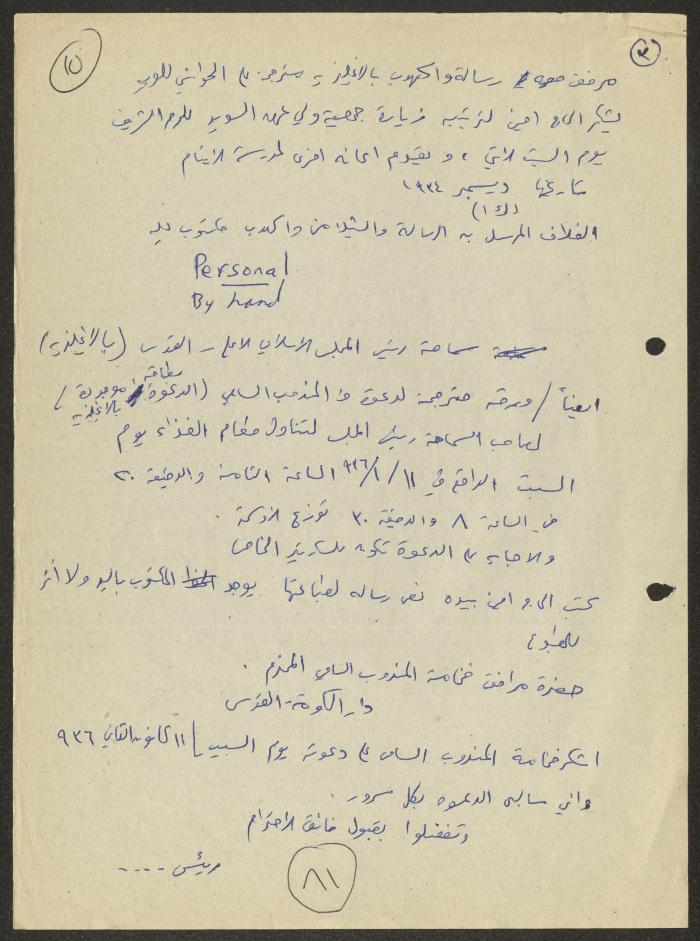 ١٥
٣
مرفق رسالة بالانجليزية مترجمة على الحواشي
يشكر الحاج امين لترتيبه زيارة جمعية ولي عهد السويد للحرم الشريف
يوم السبت الآتي، و تقديم اعانة اخرى لمدرسة الايتام
تاريخها ديسمبر ١٩٣٤
(ك١)
الغلاف المرسل به الرسالة مكتوب عليه
Personal
By hand
سماحة رئيس المجلس الاسلامي الاعلى - القدس (بالانجليزية)
ايضاً / ورقة مترجمة لدعوة المندوب السامي (الدعوة بطاقة موجودة بالانجليزية)
لصاحب السماحة رئيس المجلس لتناول طعام الغذاء يوم
السبت الواقع في ١١/١/٩٣٦ الساعة الثامنة والدقيقة ٢٠
في الساعة ٨ والدقيقة ٣٠ توزع الاوسمة.
والاجابة على الدعوة تكون للسكرتير الخاص
كتب الحاج امين بيده نص رسالة لطباعتها يوجد المكتوب باليد ولا أثر
للمطبوع
حضرة مرافق فخامة المندوب السامي المحترم.
دار الحكومة - القدس
اشكر فخامة المندوب السامي على دعوته يوم السبت ١١ كانون الثاني ٩٣٦
واني سألبي الدعوة بكل سرور.
وتفضلوا بقبول فائق الاحترام
رئيس ....
٨١